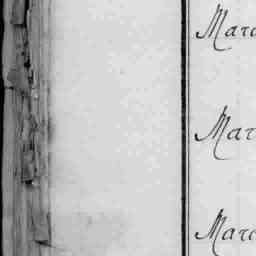 Marc
Mar
Marc